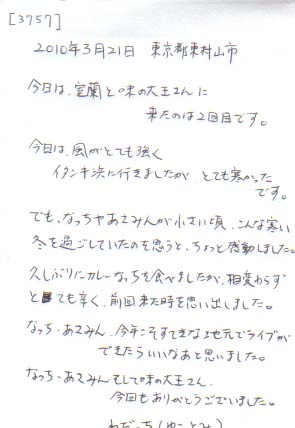 [3757]
2010年3月21日 東京都東村山市
今日は、室蘭と味の大王さんに
来たのは2回目です。
今日は、風がとても強く
イタンキ浜に行きましたが とても寒かった
です。
でも、なっちやあさみんが小さい頃、こんな寒い
冬を過ごしていたのを思うと、ちょっと感動しました。
久しぶりにカレーなっちを食べましたが、相変わらず
とても辛く、前回来た時を思い出しました。
なっち・あさみん、今年こそすてきな地元でライブが
できたらいいなあと思いました。
なっち・あさみんそして味の大王さん、
今回もありがとうございました。
わだっち(